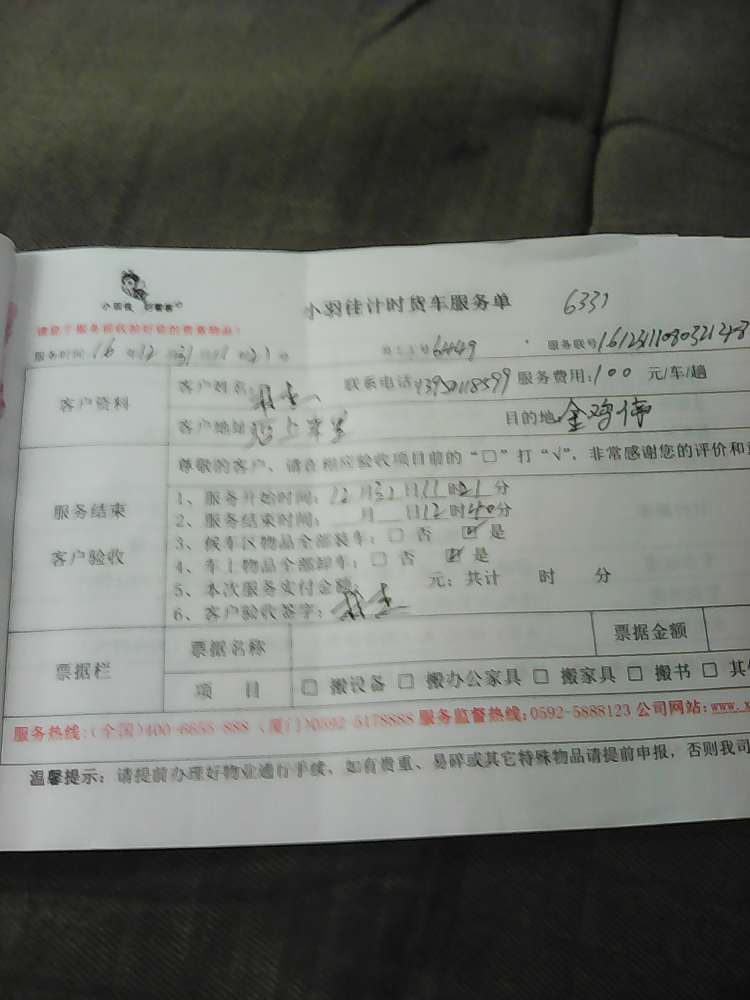 小羽佳计时货车服务单 6331
小羽佳
服务时间 16 年 12 月 31 日 21 分 员工工号 6449 服务联号 161231108032148
客户资料 客户姓名: 联系电话 服务费用:100 元/车/趟
客户地址 目的地:
尊敬的客户、请在相应验收项目前的“□”打“√”,非常感谢您的评价和
服务结束
客户验收
1、服务开始时间: 12 月 31 日 11 时 21 分
2、服务结束时间: 月 日 12 时 40 分
3、候车区物品全部装车: □ 否 ☑ 是
4、车上物品全部卸车: □ 否 ☑ 是
5、本次服务实付金额: 元; 共计 时 分
6、客户验收签字:
票据栏 票据名称 票据金额
项 目 □ 搬设备 □ 搬办公家具 □ 搬家具 □ 搬书 □ 其
服务热线:(全国)400-6655-888 (厦门)0592-5178888 服务监督热线:0592-5888123 公司网站:www.x
温馨提示: 请提前办理好物业通行手续, 如有贵重、易碎或其它特殊物品请提前申报, 否则我司